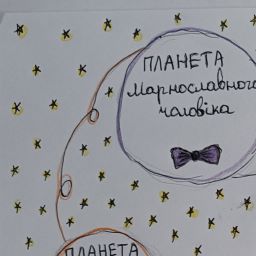 ПЛАНЕТА
Марнославного
чоловіка
ПЛАНЕТА